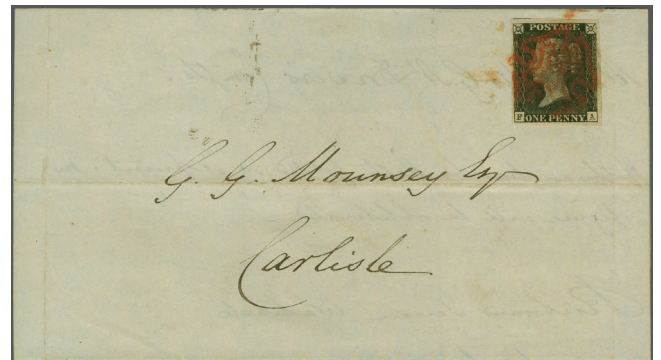 POSTAGE
P A
ONE PENNY
G. G. Mounsey Esq
Carlisle